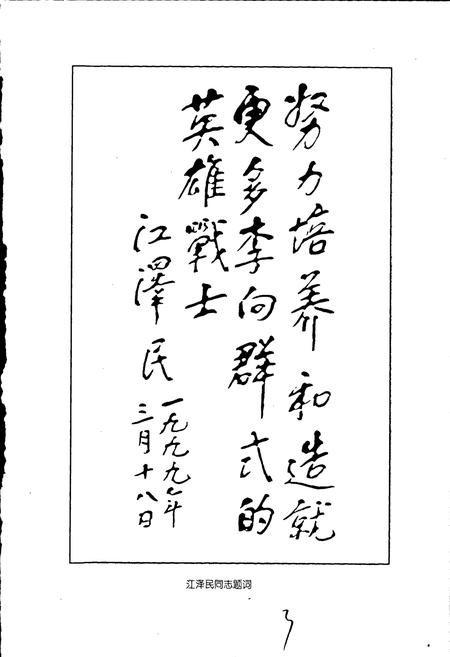 努力培养和造就
更多李向群式的
英雄戰士
江澤民
一九九九年
三月十八日
江泽民同志题词